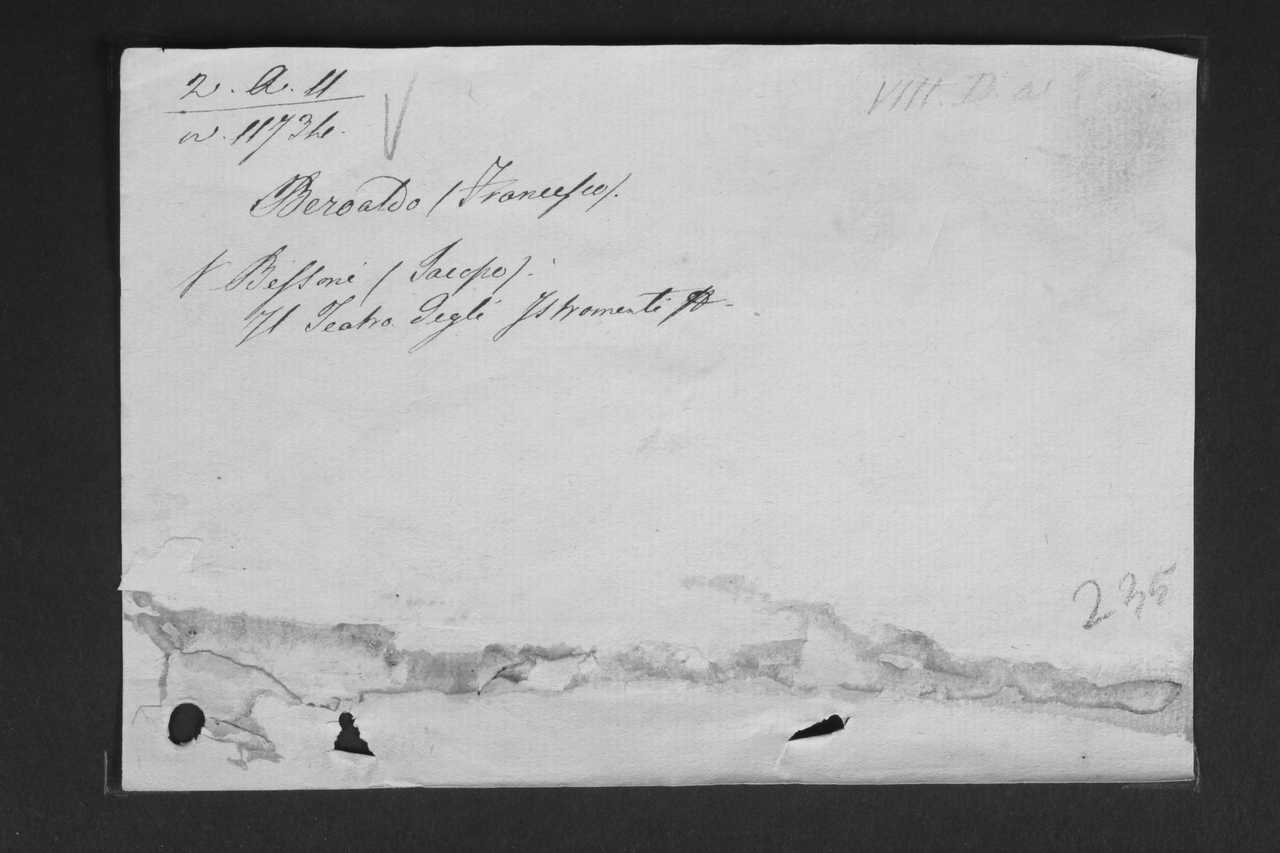 2. A. 11
VIII. D. a
n. 11734.
V
Beroaldo (Francesco).
V Bessoni (Jacopo).
Il Teatro degli Istromenti
235